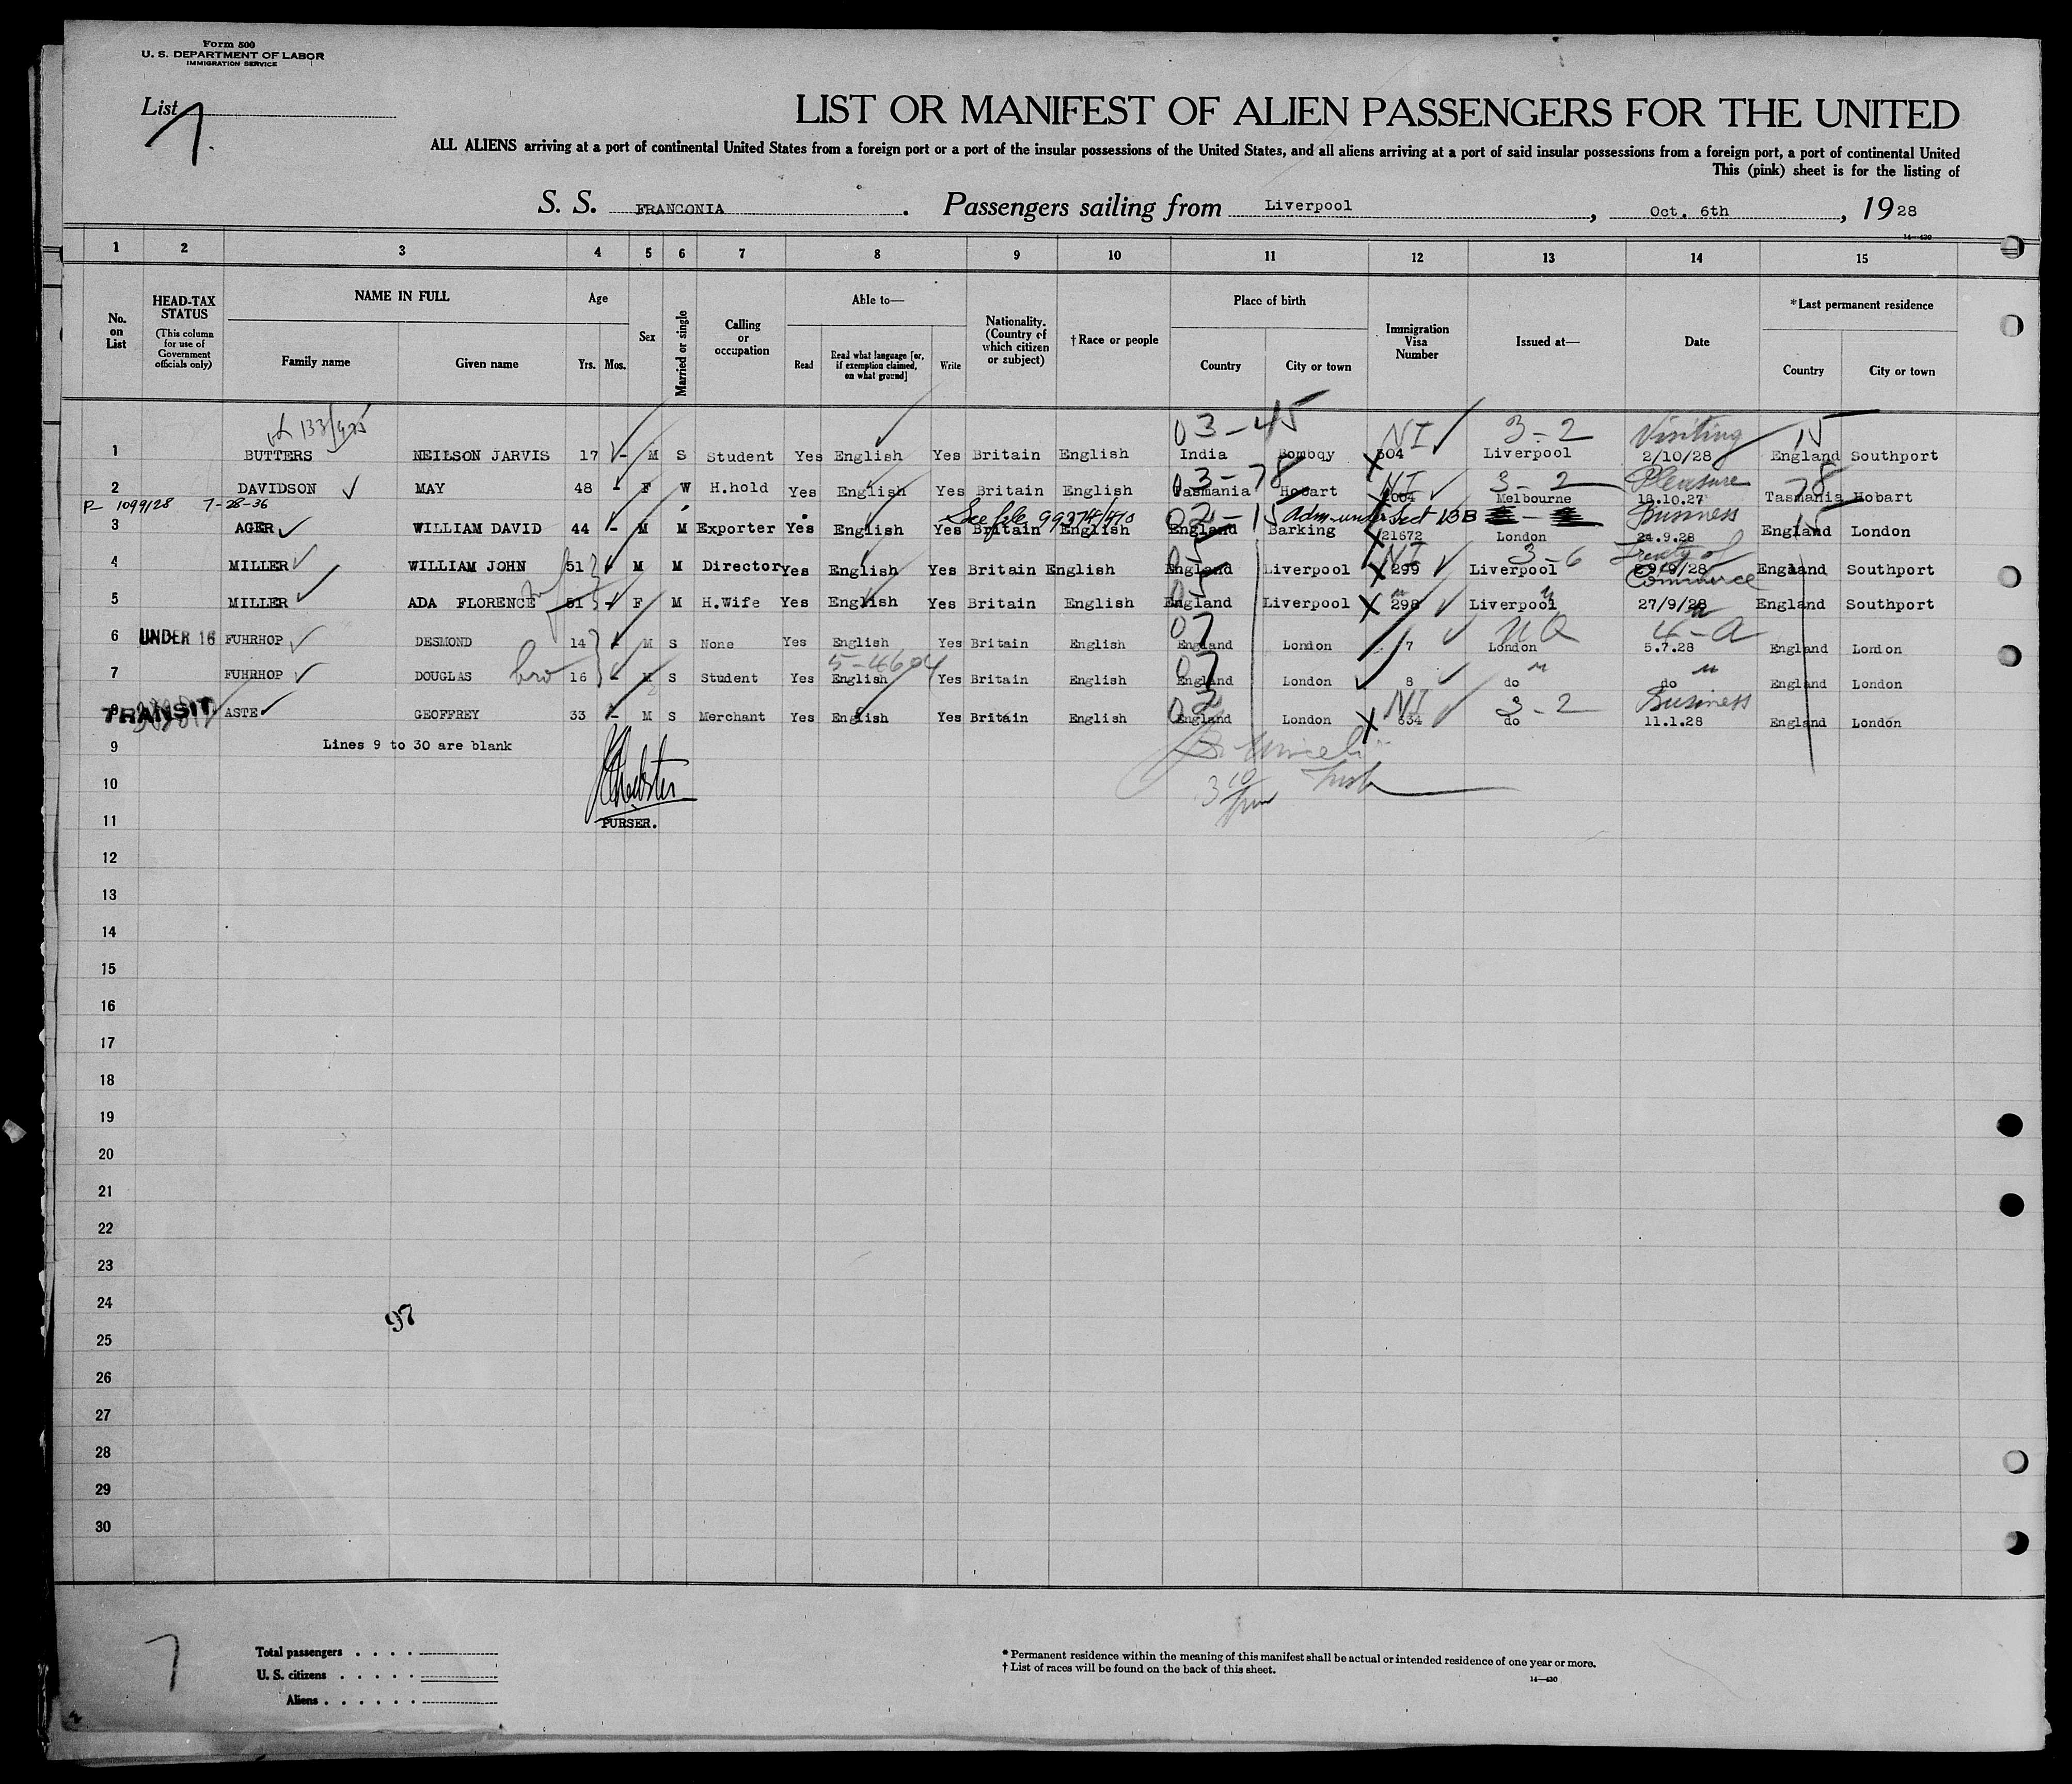 Form 500
U. S. DEPARTMENT OF LABOR
IMMIGRATION SERVICE
List 7.
LIST OR MANIFEST OF ALIEN PASSENGERS FOR THE UNITED
ALL ALIENS arriving at a port of continental United States from a foreign port or a port of the insular possessions of the United States, and all aliens arriving at a port of said insular possessions from a foreign port, a port of continental United
This (pink) sheet is for the listing of
S. S. FRANCONIA. Passengers sailing from Liverpool, Oct. 6th, 1928
14—430
1 2 3 4 5 6 7 8 9 10 11 12 13 14 15
No. on List
HEAD-TAX STATUS
(This column for use of Government officials only)
NAME IN FULL
Family name
Given name
Age
Yrs. Mos.
Sex
Married or single
Calling or occupation
Able to—
Read
Read what language [or, if exemption claimed, on what ground]
Write
Nationality. (Country of which citizen or subject)
†Race or people
Place of birth
Country
City or town
Immigration Visa Number
Issued at—
Date
*Last permanent residence
Country
City or town
03-45 NI 3-2 Visiting 15
1 BUTTERS NEILSON JARVIS 17 - M S Student Yes English Yes Britain English India Bomboy 504 Liverpool 2/10/28 England Southport
03-78 NI 3-2 Pleasure 78
2 DAVIDSON MAY 48 - F W H.hold Yes English Yes Britain English Tasmania Hobart 2004 Melbourne 18.10.27 Tasmania Hobart
R 1099/28 7-28-36 See file 99374/490 02-15 Adm under Sect 13B Business 15
3 AGER WILLIAM DAVID 44 - M M Exporter Yes English Yes Britain English England Barking 21672 London 24.9.28 England London
05 NI 3-6 Treaty of Commerce
4 MILLER WILLIAM JOHN 51 M M Director Yes English Yes Britain English England Liverpool 299 Liverpool 29/9/28 England Southport
05
5 MILLER ADA FLORENCE 51 - F M H.Wife Yes English Yes Britain English England Liverpool 298 Liverpool 27/9/28 England Southport
07 4-a
6 UNDER 16 FUHRHOP DESMOND 14 - M S None Yes English Yes Britain English England London 7 London 5.7.28 England London
bro 5-4604 07
7 FUHRHOP DOUGLAS 16 - M S Student Yes English Yes Britain English England London 8 do do England London
03 NI 3-2 Business
8 TRANSIT ASTE GEOFFREY 33 - M S Merchant Yes English Yes Britain English England London 634 do 11.1.28 England London
9 Lines 9 to 30 are blank
10
11 PURSER.
12
13
14
15
16
17
18
19
20
21
22
23
24
97
25
26
27
28
29
30
7
Total passengers
U. S. citizens
Aliens
* Permanent residence within the meaning of this manifest shall be actual or intended residence of one year or more.
† List of races will be found on the back of this sheet.
14—430